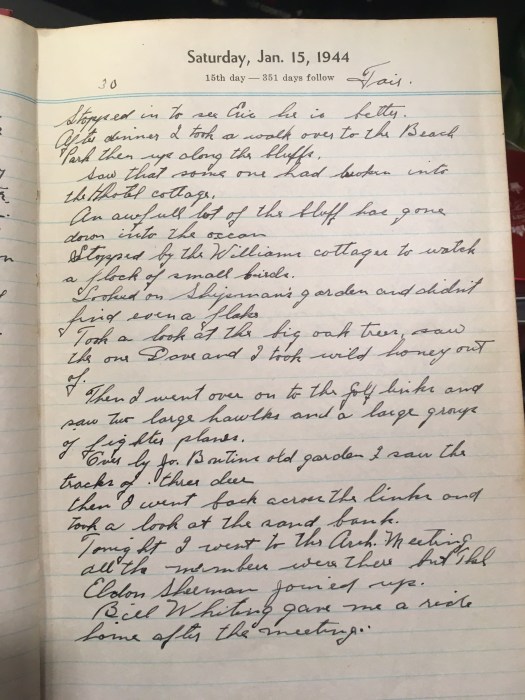 Saturday, Jan. 15, 1944
15th day — 351 days follow
30 Fair.
Stopped in to see Eric he is better.
After dinner I took a walk over to the Beach
Park then up along the bluffs.
Saw that some one had broken into
the hotel cottage.
An awfull lot of the bluff has gone
down into the ocean
Stopped by the Williams cottages to watch
a flock of small birds.
Looked on garden and didn't
find even a flake
Took a look at the big oak trees, saw
the one Dave and I took wild honey out
of.
Then I went over on to the golf links and
saw two large hawlks and a large group
of fighter planes.
Over by Jo. old garden I saw the
tracks of three deer
then I went back across the links and
took a look at the sand bank.
Tonight I went to the Arch. Meeting
all the members were there but
Eldon Sherman joined up.
Bill Whiting gave me a ride
home after the meeting.